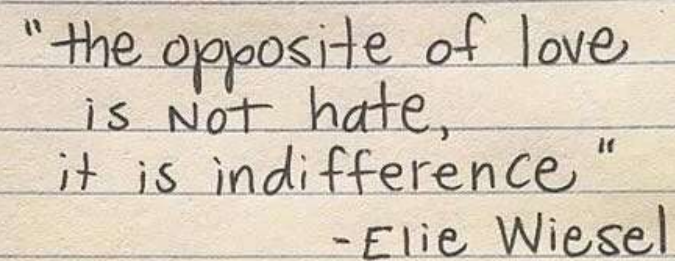 "the opposite of love
is NOT hate,
it is indifference"
-Elie Wiesel